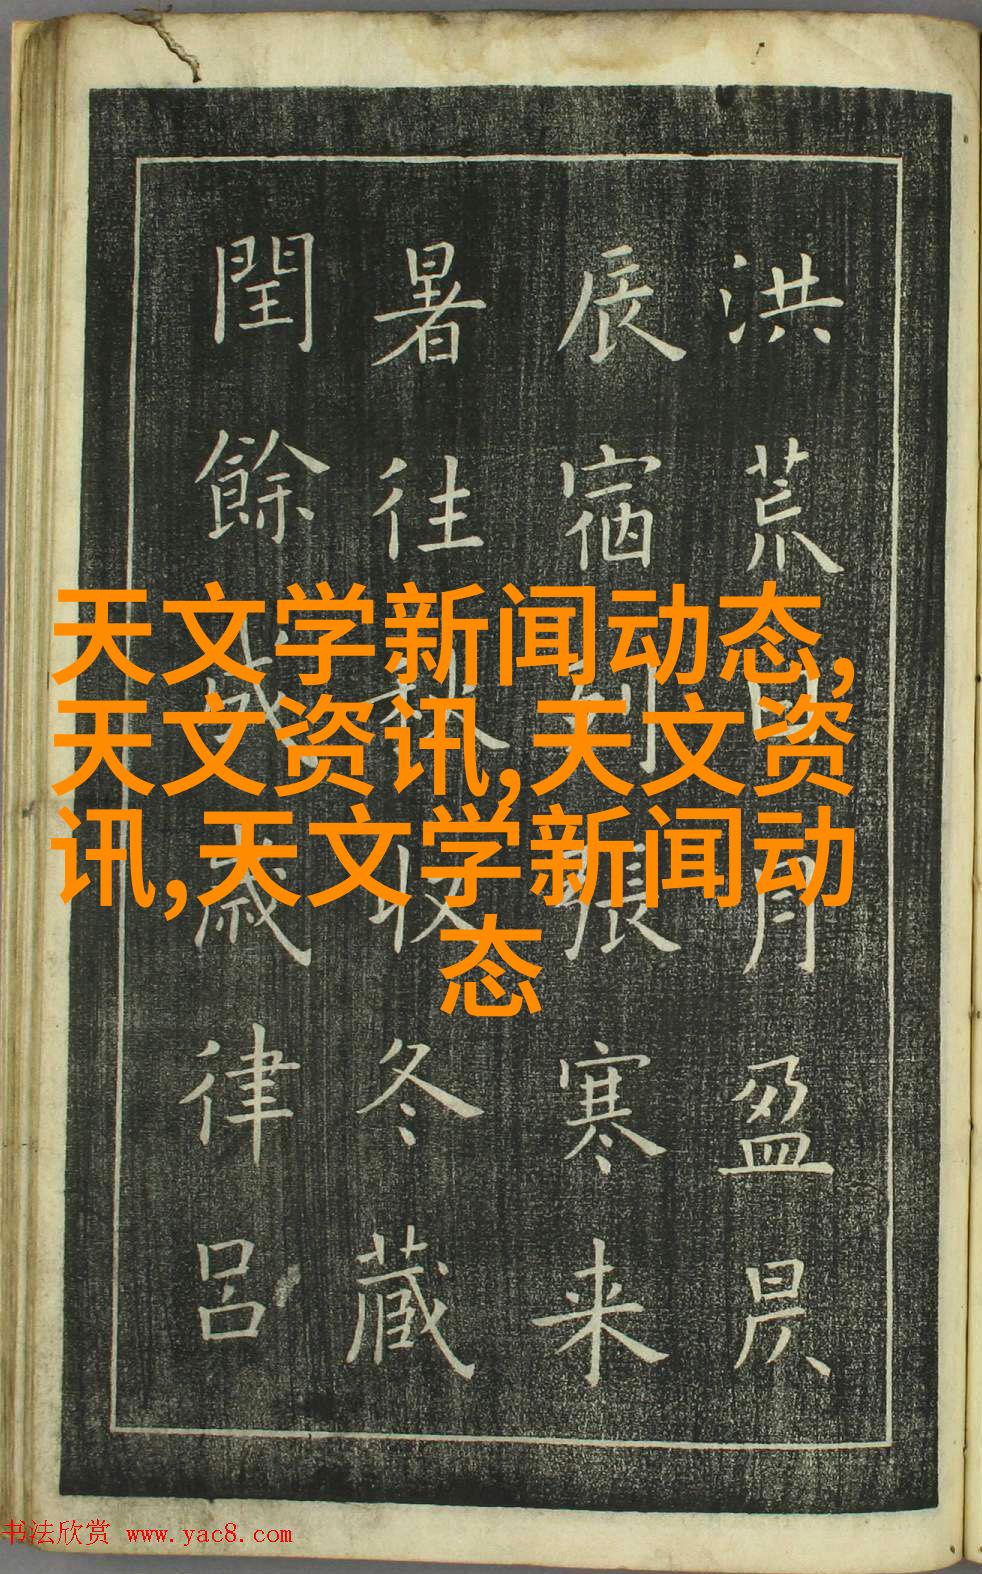 洪荒日月盈昃
辰宿列張寒来
暑往秋收冬藏
閏餘成歲律呂
天文学新闻动态,
天文资讯,天文资
讯,天文学新闻动
态
书法欣赏 www.yac8.com